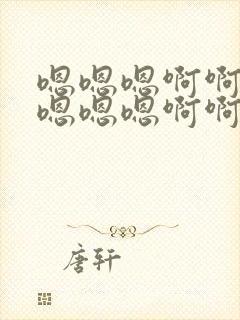 嗯嗯嗯啊啊
嗯嗯嗯啊啊
唐轩